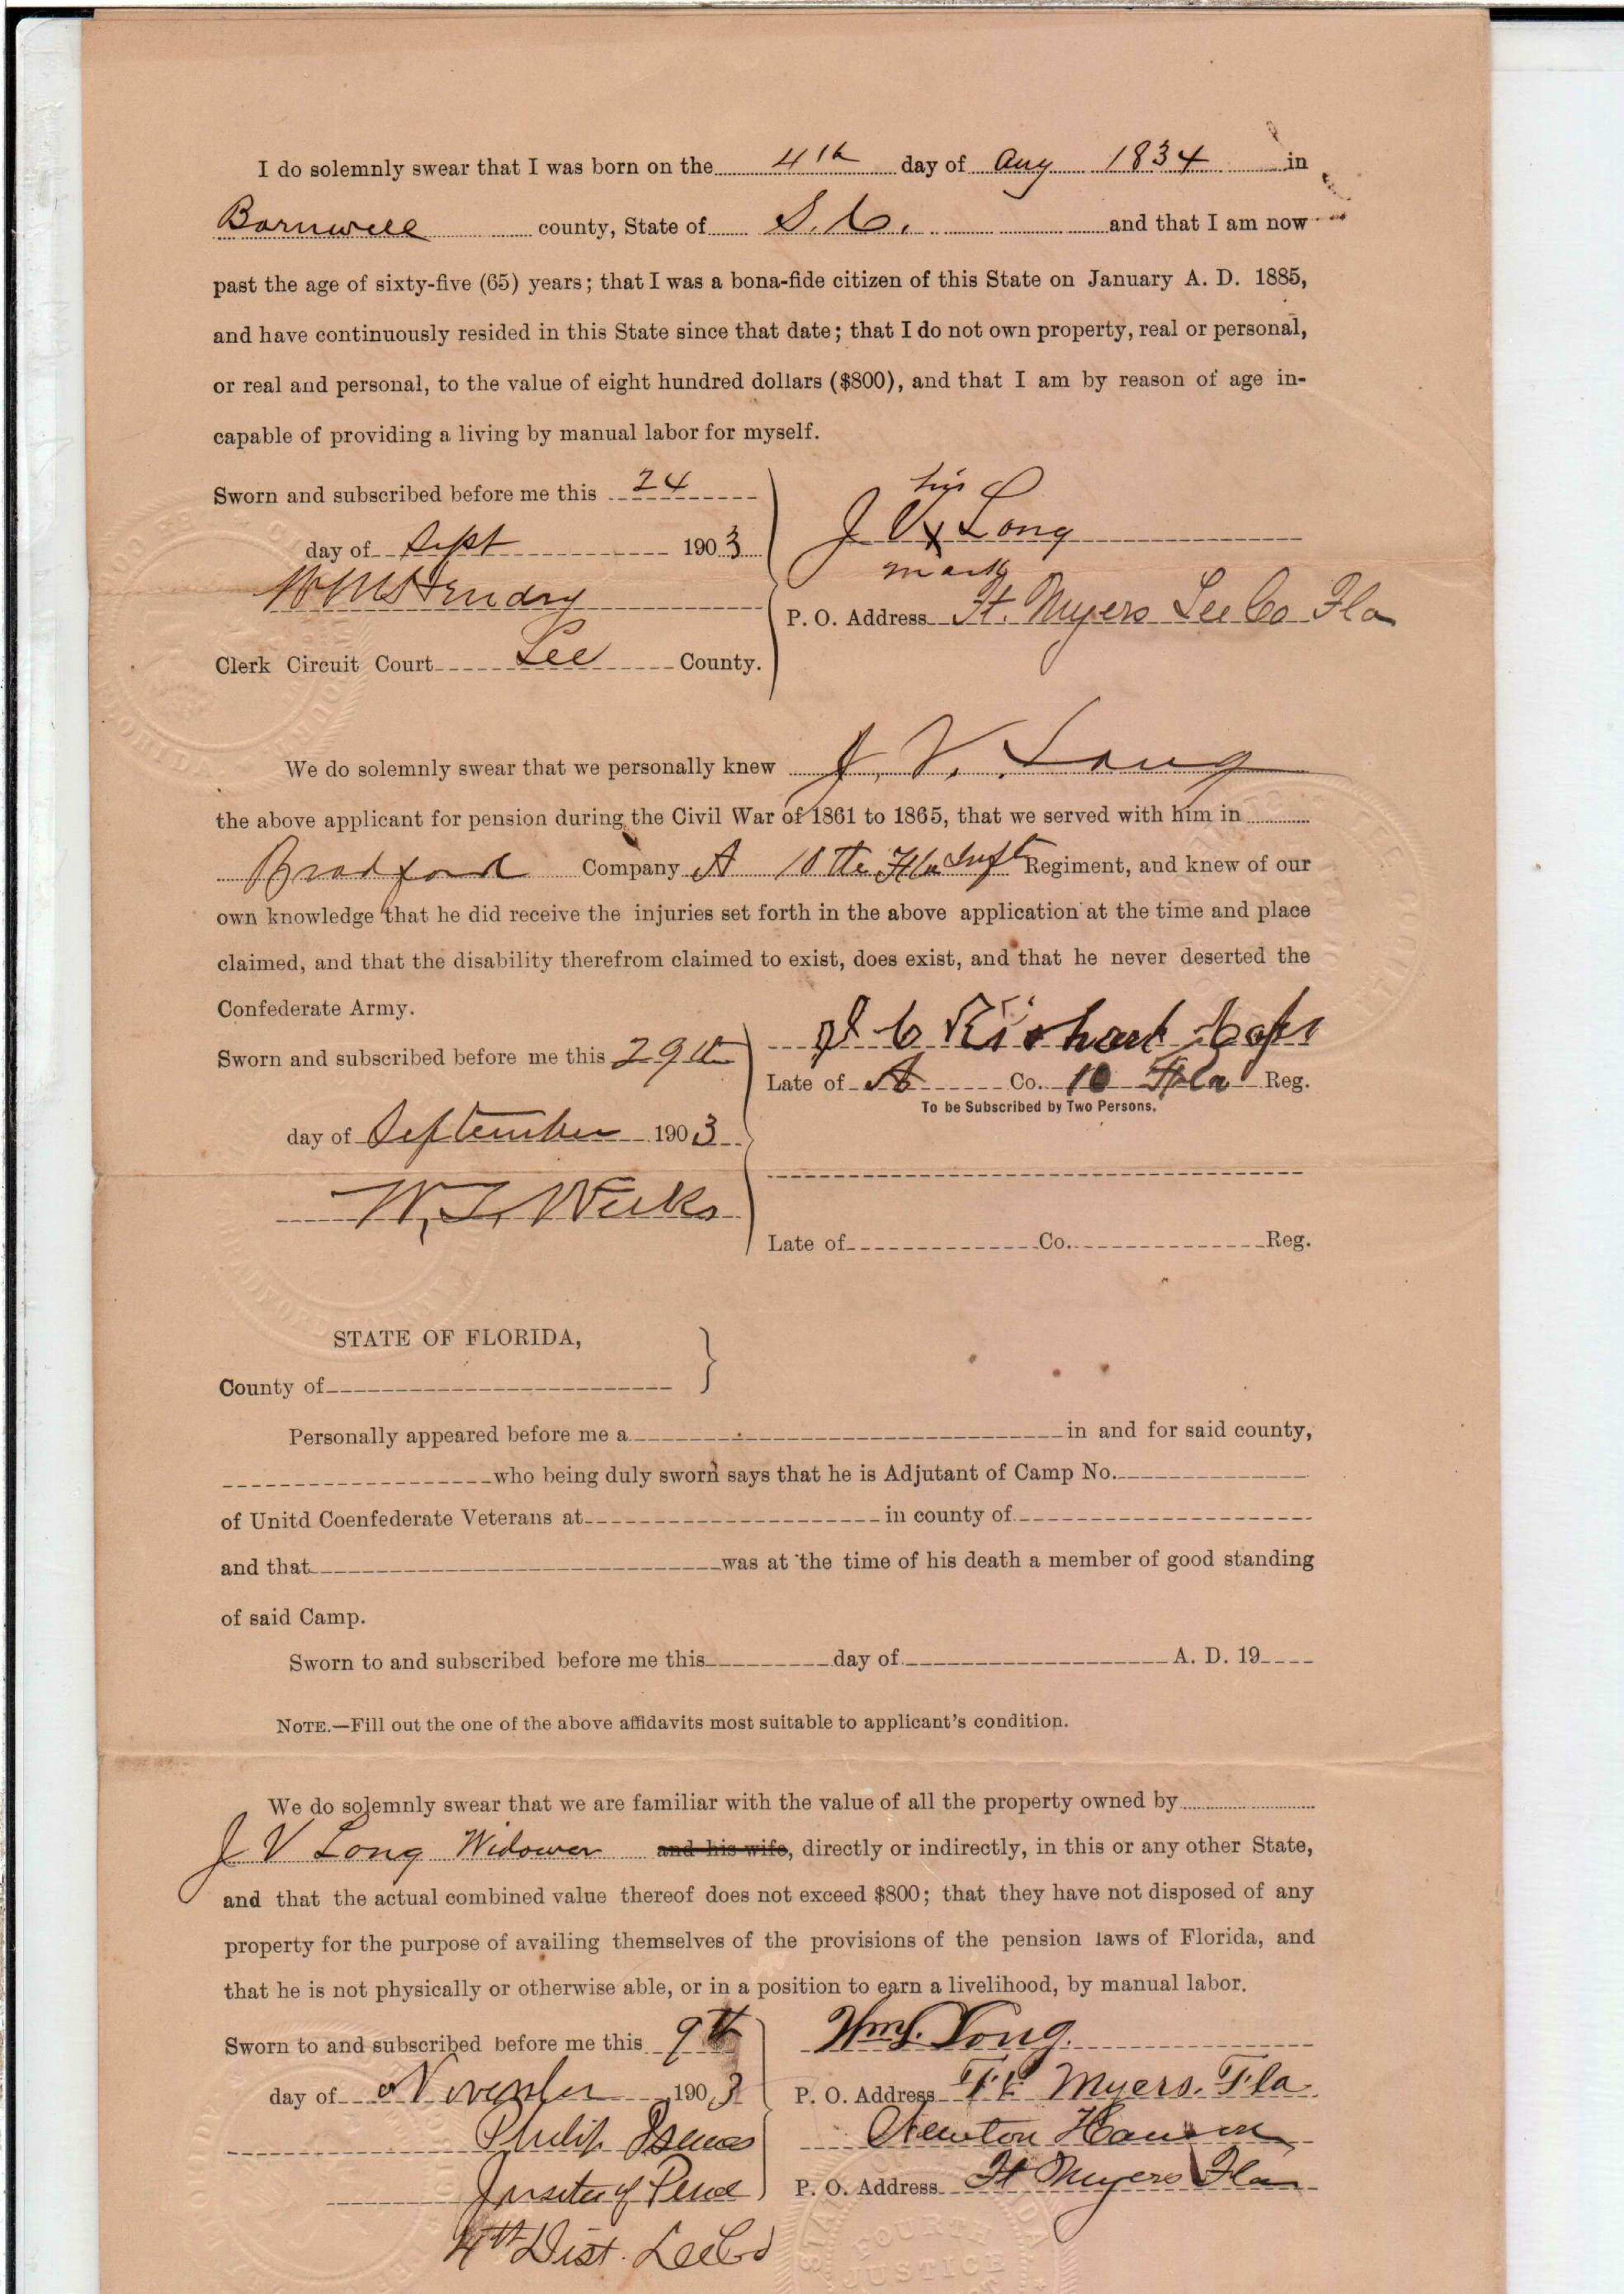 I do solemnly swear that I was born on the 4th day of Aug 1834 in
Barnwell county, State of S. C. and that I am now
past the age of sixty-five (65) years; that I was a bona-fide citizen of this State on January A. D. 1885,
and have continuously resided in this State since that date; that I do not own property, real or personal,
or real and personal, to the value of eight hundred dollars ($800), and that I am by reason of age in-
capable of providing a living by manual labor for myself.
Sworn and subscribed before me this 24
day of Sept 1903
Hendry
Clerk Circuit Court Lee County.
his
J V x Long
mark
P. O. Address Ft. Myers Lee Co Fla
We do solemnly swear that we personally knew J. V. Long
the above applicant for pension during the Civil War of 1861 to 1865, that we served with him in
Bradford Company A 10th Fla Inft Regiment, and knew of our
own knowledge that he did receive the injuries set forth in the above application at the time and place
claimed, and that the disability therefrom claimed to exist, does exist, and that he never deserted the
Confederate Army.
Sworn and subscribed before me this 29th
day of September 1903
W. T. Weeks
C Richard Capt
Late of A Co. 10 Fla Reg.
To be Subscribed by Two Persons.
Late of Co. Reg.
STATE OF FLORIDA,
County of
Personally appeared before me a in and for said county,
who being duly sworn says that he is Adjutant of Camp No.
of Unitd Coenfederate Veterans at in county of
and that was at the time of his death a member of good standing
of said Camp.
Sworn to and subscribed before me this day of A. D. 19
NOTE.—Fill out the one of the above affidavits most suitable to applicant's condition.
We do solemnly swear that we are familiar with the value of all the property owned by
J V Long Widower and his wife, directly or indirectly, in this or any other State,
and that the actual combined value thereof does not exceed $800; that they have not disposed of any
property for the purpose of availing themselves of the provisions of the pension laws of Florida, and
that he is not physically or otherwise able, or in a position to earn a livelihood, by manual labor.
Sworn to and subscribed before me this 9th
day of November 1903
Philip Isaacs
Justice of Peace
4th Dist. Lee Co
Long.
P. O. Address Ft Myers. Fla
Newton
P. O. Address Ft Myers Fla
FOURTH
JUSTICE